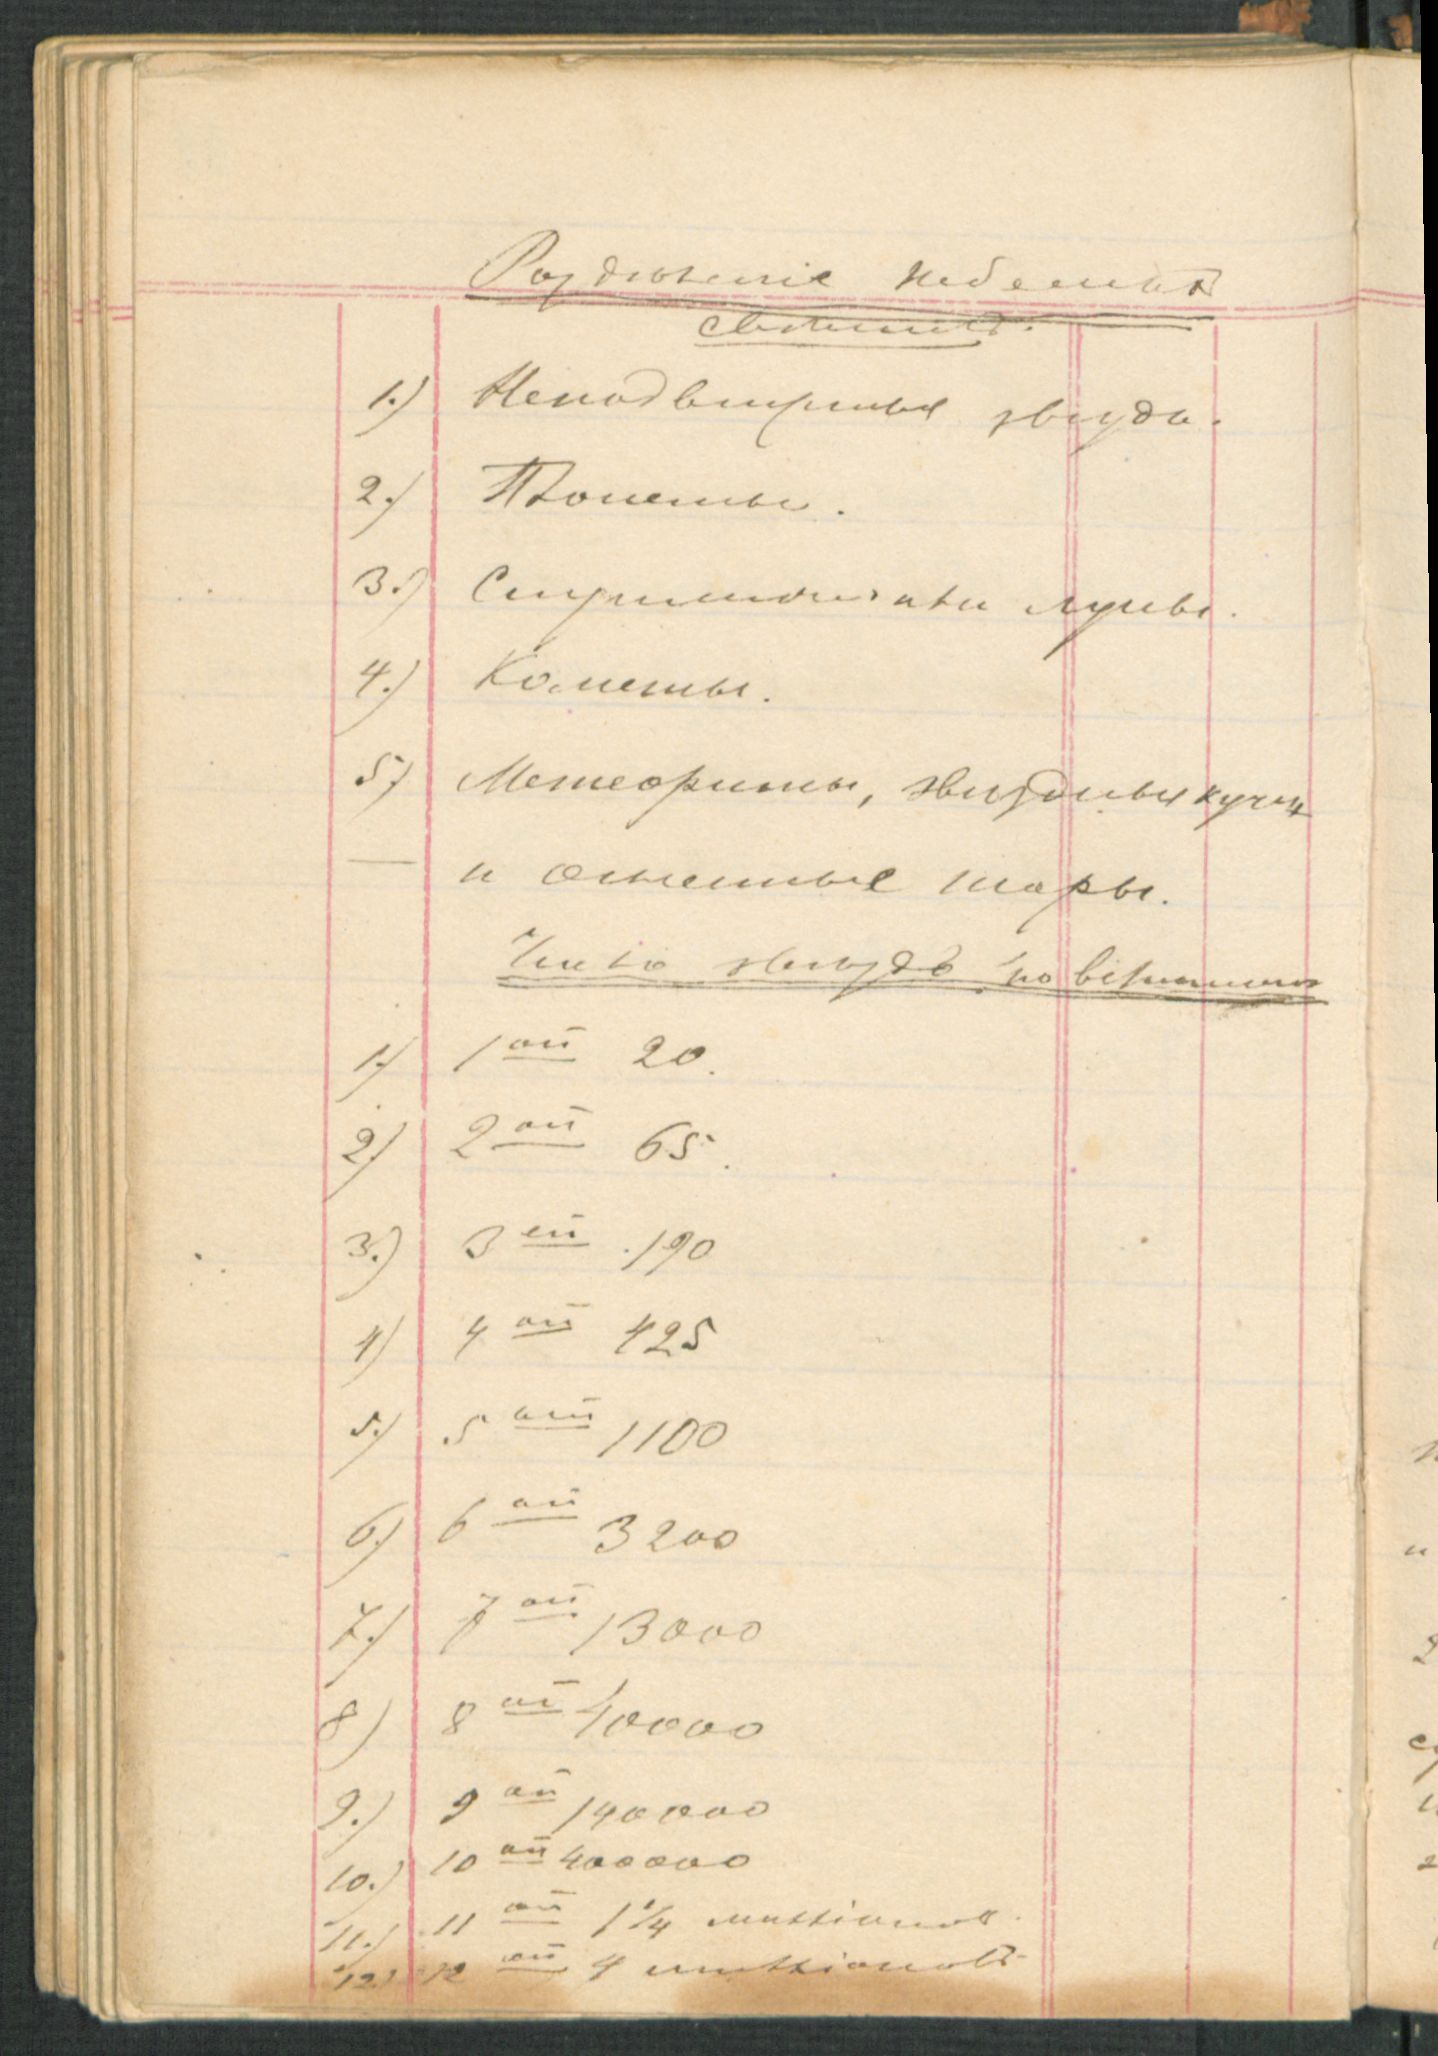 Раздѣленіе небесныхъ
свѣтилъ.
1.) Неподвижныя звѣзды.
2.) Планеты.
3.) Спутники или луны.
4.) Кометы.
5) Метеориты, звѣздныя кучи
— и огненныя шары.
Число звѣздъ по величинѣ
1.) 1 ой 20.
2) 2 ой 65.
3.) 3 ей 190
4) 4 ой 425
5.) 5 ой 1100
6.) 6 ой 3200
7.) 7 ой 13000
8) 8 ой 40000
9.) 9 ой 140000
10.) 10 ой 400000
11.) 11 ой 1 1/4 милліоновъ.
12) 12 ой 4 милліоновъ